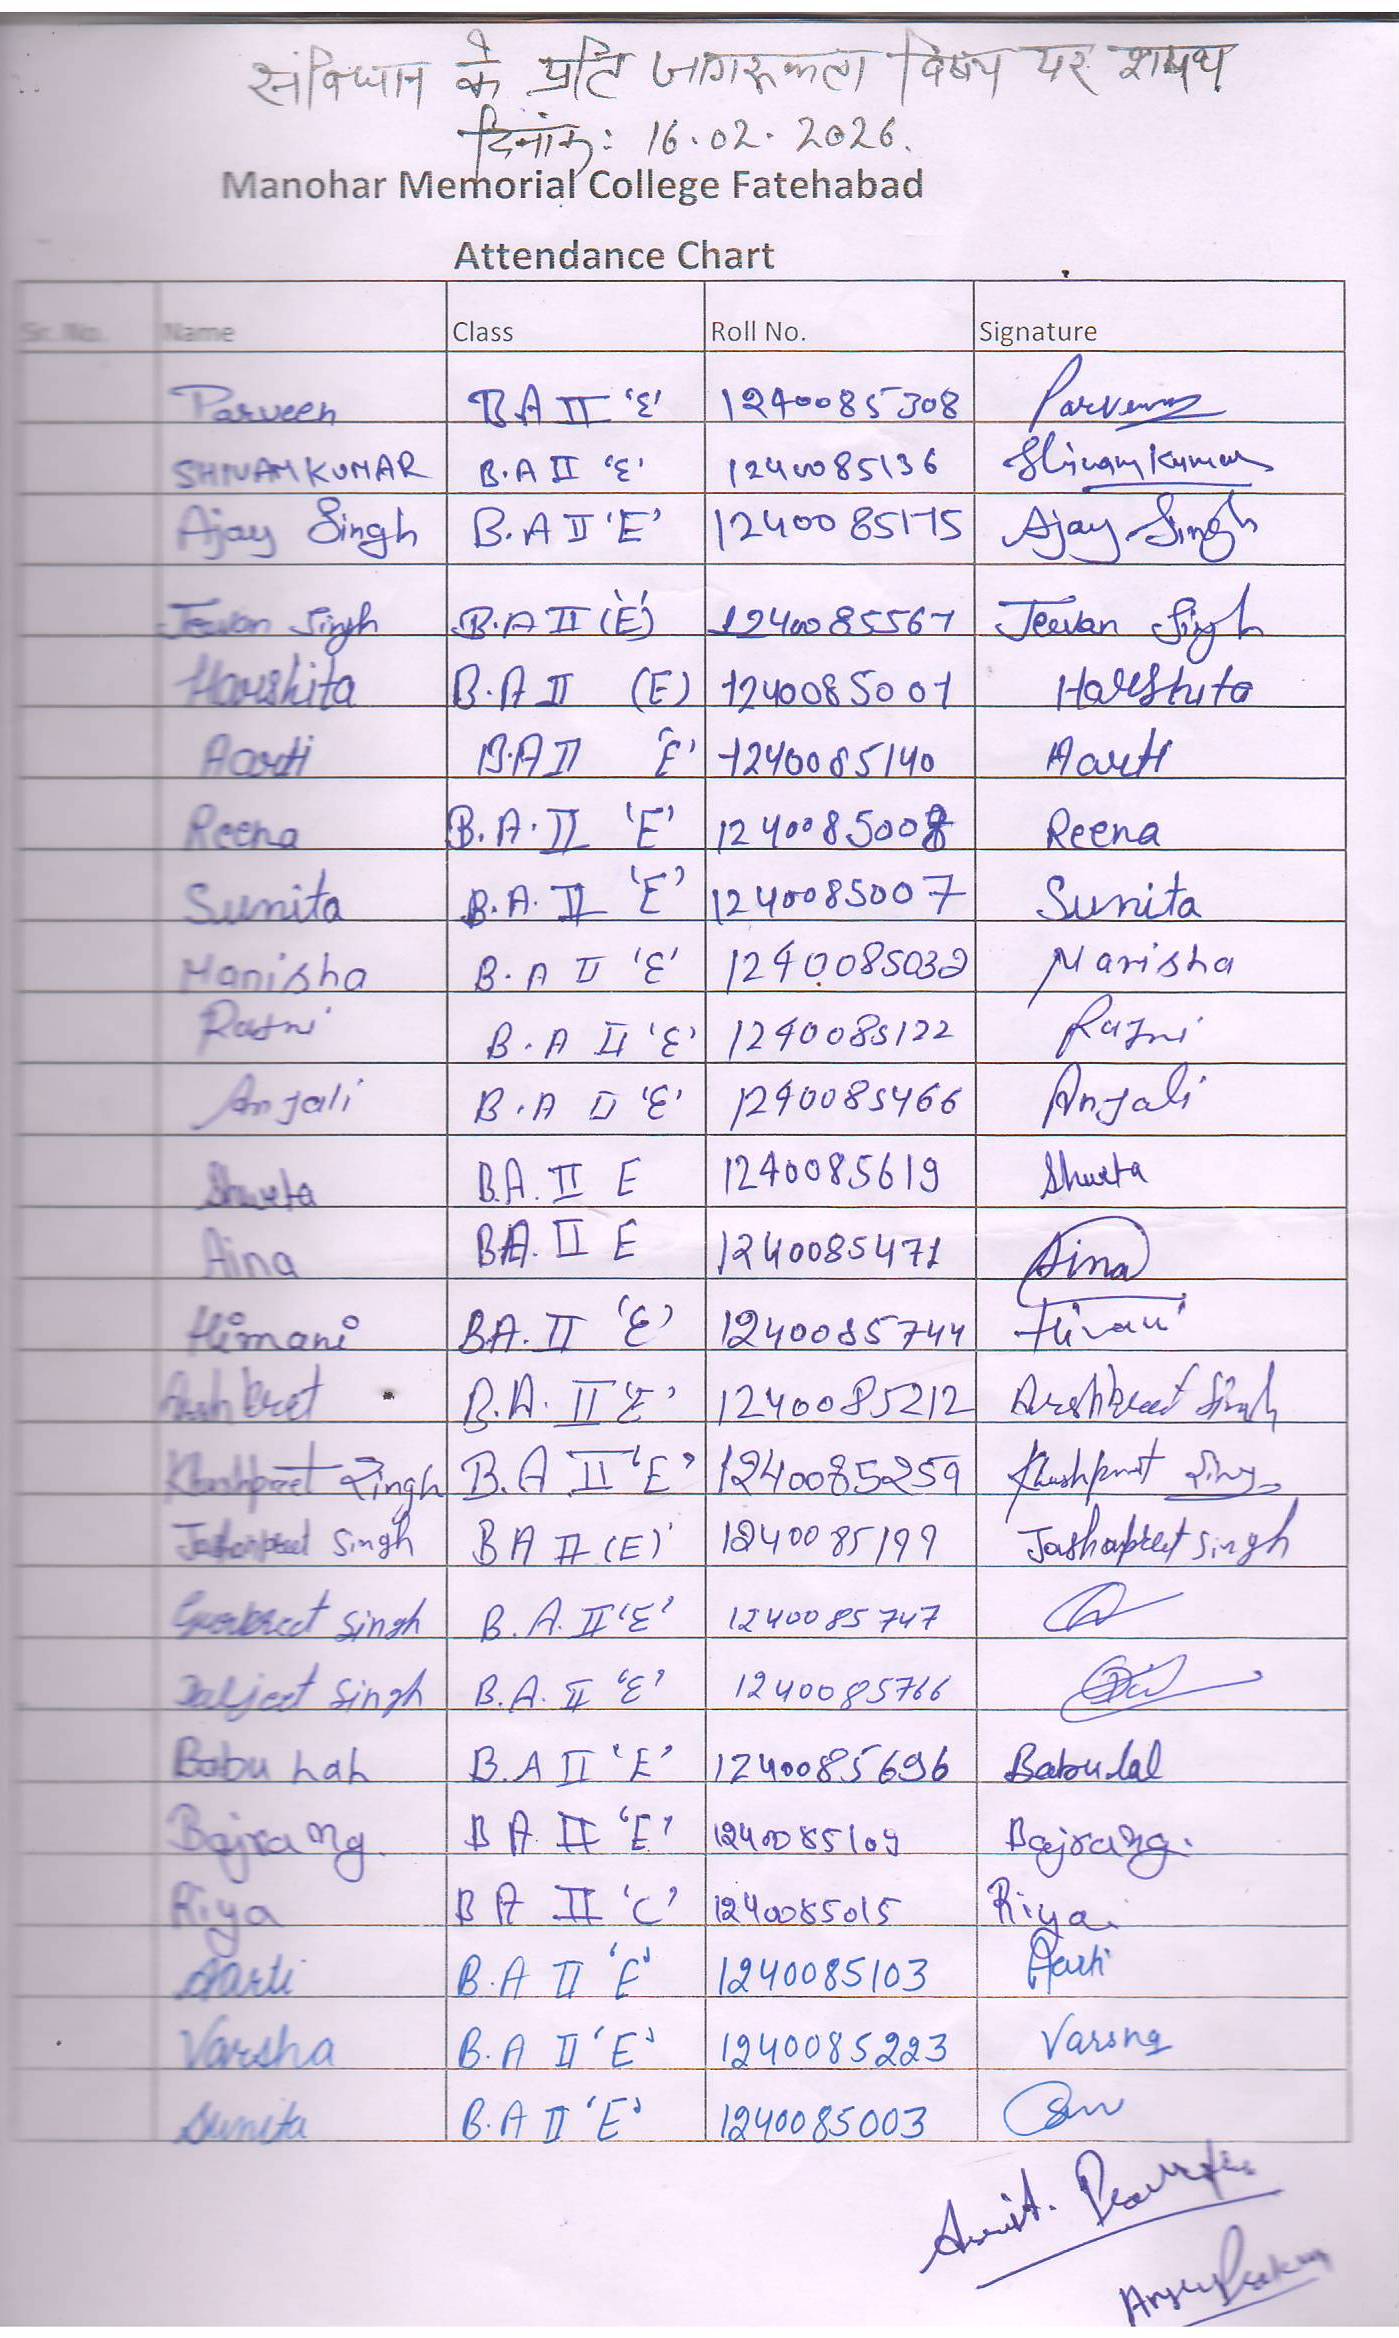 संविधान के प्रति जागरूकता विषय पर शपथ
दिनांक: 16.02.2026.
Manohar Memorial College Fatehabad
Attendance Chart
Sr. No. Name Class Roll No. Signature
Parveen BA II 'E' 1240085308 Parveen
SHIVAM KUMAR B.A II 'E' 1240085136 Shivam Kumar
Ajay Singh B.A II 'E' 1240085175 Ajay Singh
Jeevan Singh B.A II (E) 1240085567 Jeevan Singh
Harshita B.A II (E) 1240085001 Harshita
Aarti B.A II 'E' 1240085140 Aarti
Reena B.A. II 'E' 1240085008 Reena
Sunita B.A. II 'E' 1240085007 Sunita
Manisha B.A II 'E' 1240085032 Manisha
Rajni B.A II 'E' 1240085122 Rajni
Anjali B.A II 'E' 1240085466 Anjali
Shweta B.A. II E 1240085619 Shweta
Aina BA. II E 1240085471 Aina
Himani B.A. II 'E' 1240085744 Himani
Arshpreet B.A. II 'E' 1240085212 Arshpreet Singh
Khushpreet Singh B.A II 'E' 1240085259 Khushpreet Singh
Jashanpreet Singh BA II (E) 1240085199 Jashanpreet Singh
Gurpreet Singh B.A. II 'E' 1240085747
Daljeet Singh B.A. II 'E' 1240085766
Babu Lal B.A II 'E' 1240085696 Babu lal
Bajrang BA II 'E' 1240085109 Bajrang.
Riya BA II 'C' 1240085015 Riya
Aarti B.A II 'E' 1240085103 Aarti
Varsha B.A II 'E' 1240085223 Varsha
Sunita B.A II 'E' 1240085003